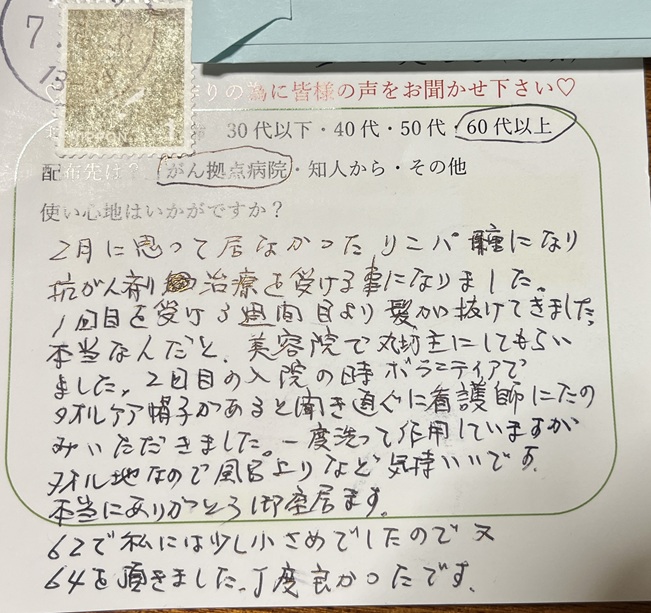 7.
13
りの為に皆様の声をお聞かせ下さい♡
30代以下・40代・50代・60代以上
配布先は？ がん拠点病院・知人から・その他
使い心地はいかがですか？
2月に思って居なかったリニパ腫になり
抗がん剤治療を受ける事になりました。
1回目を受け3週間目より髪が抜けてきました。
本当なんだと、美容院で丸坊主にしてもらい
ました。2回目の入院の時ボラニティアで
タオルケア帽子があると聞き直ぐに看護師にたの
みいただきました。一度洗って作用していますが
タオル地なので風呂上りなど気持いいです。
本当にありがとう御座居ます。
62で私には少し小さめでしたので又
64を頂きました。丁度良かったです。